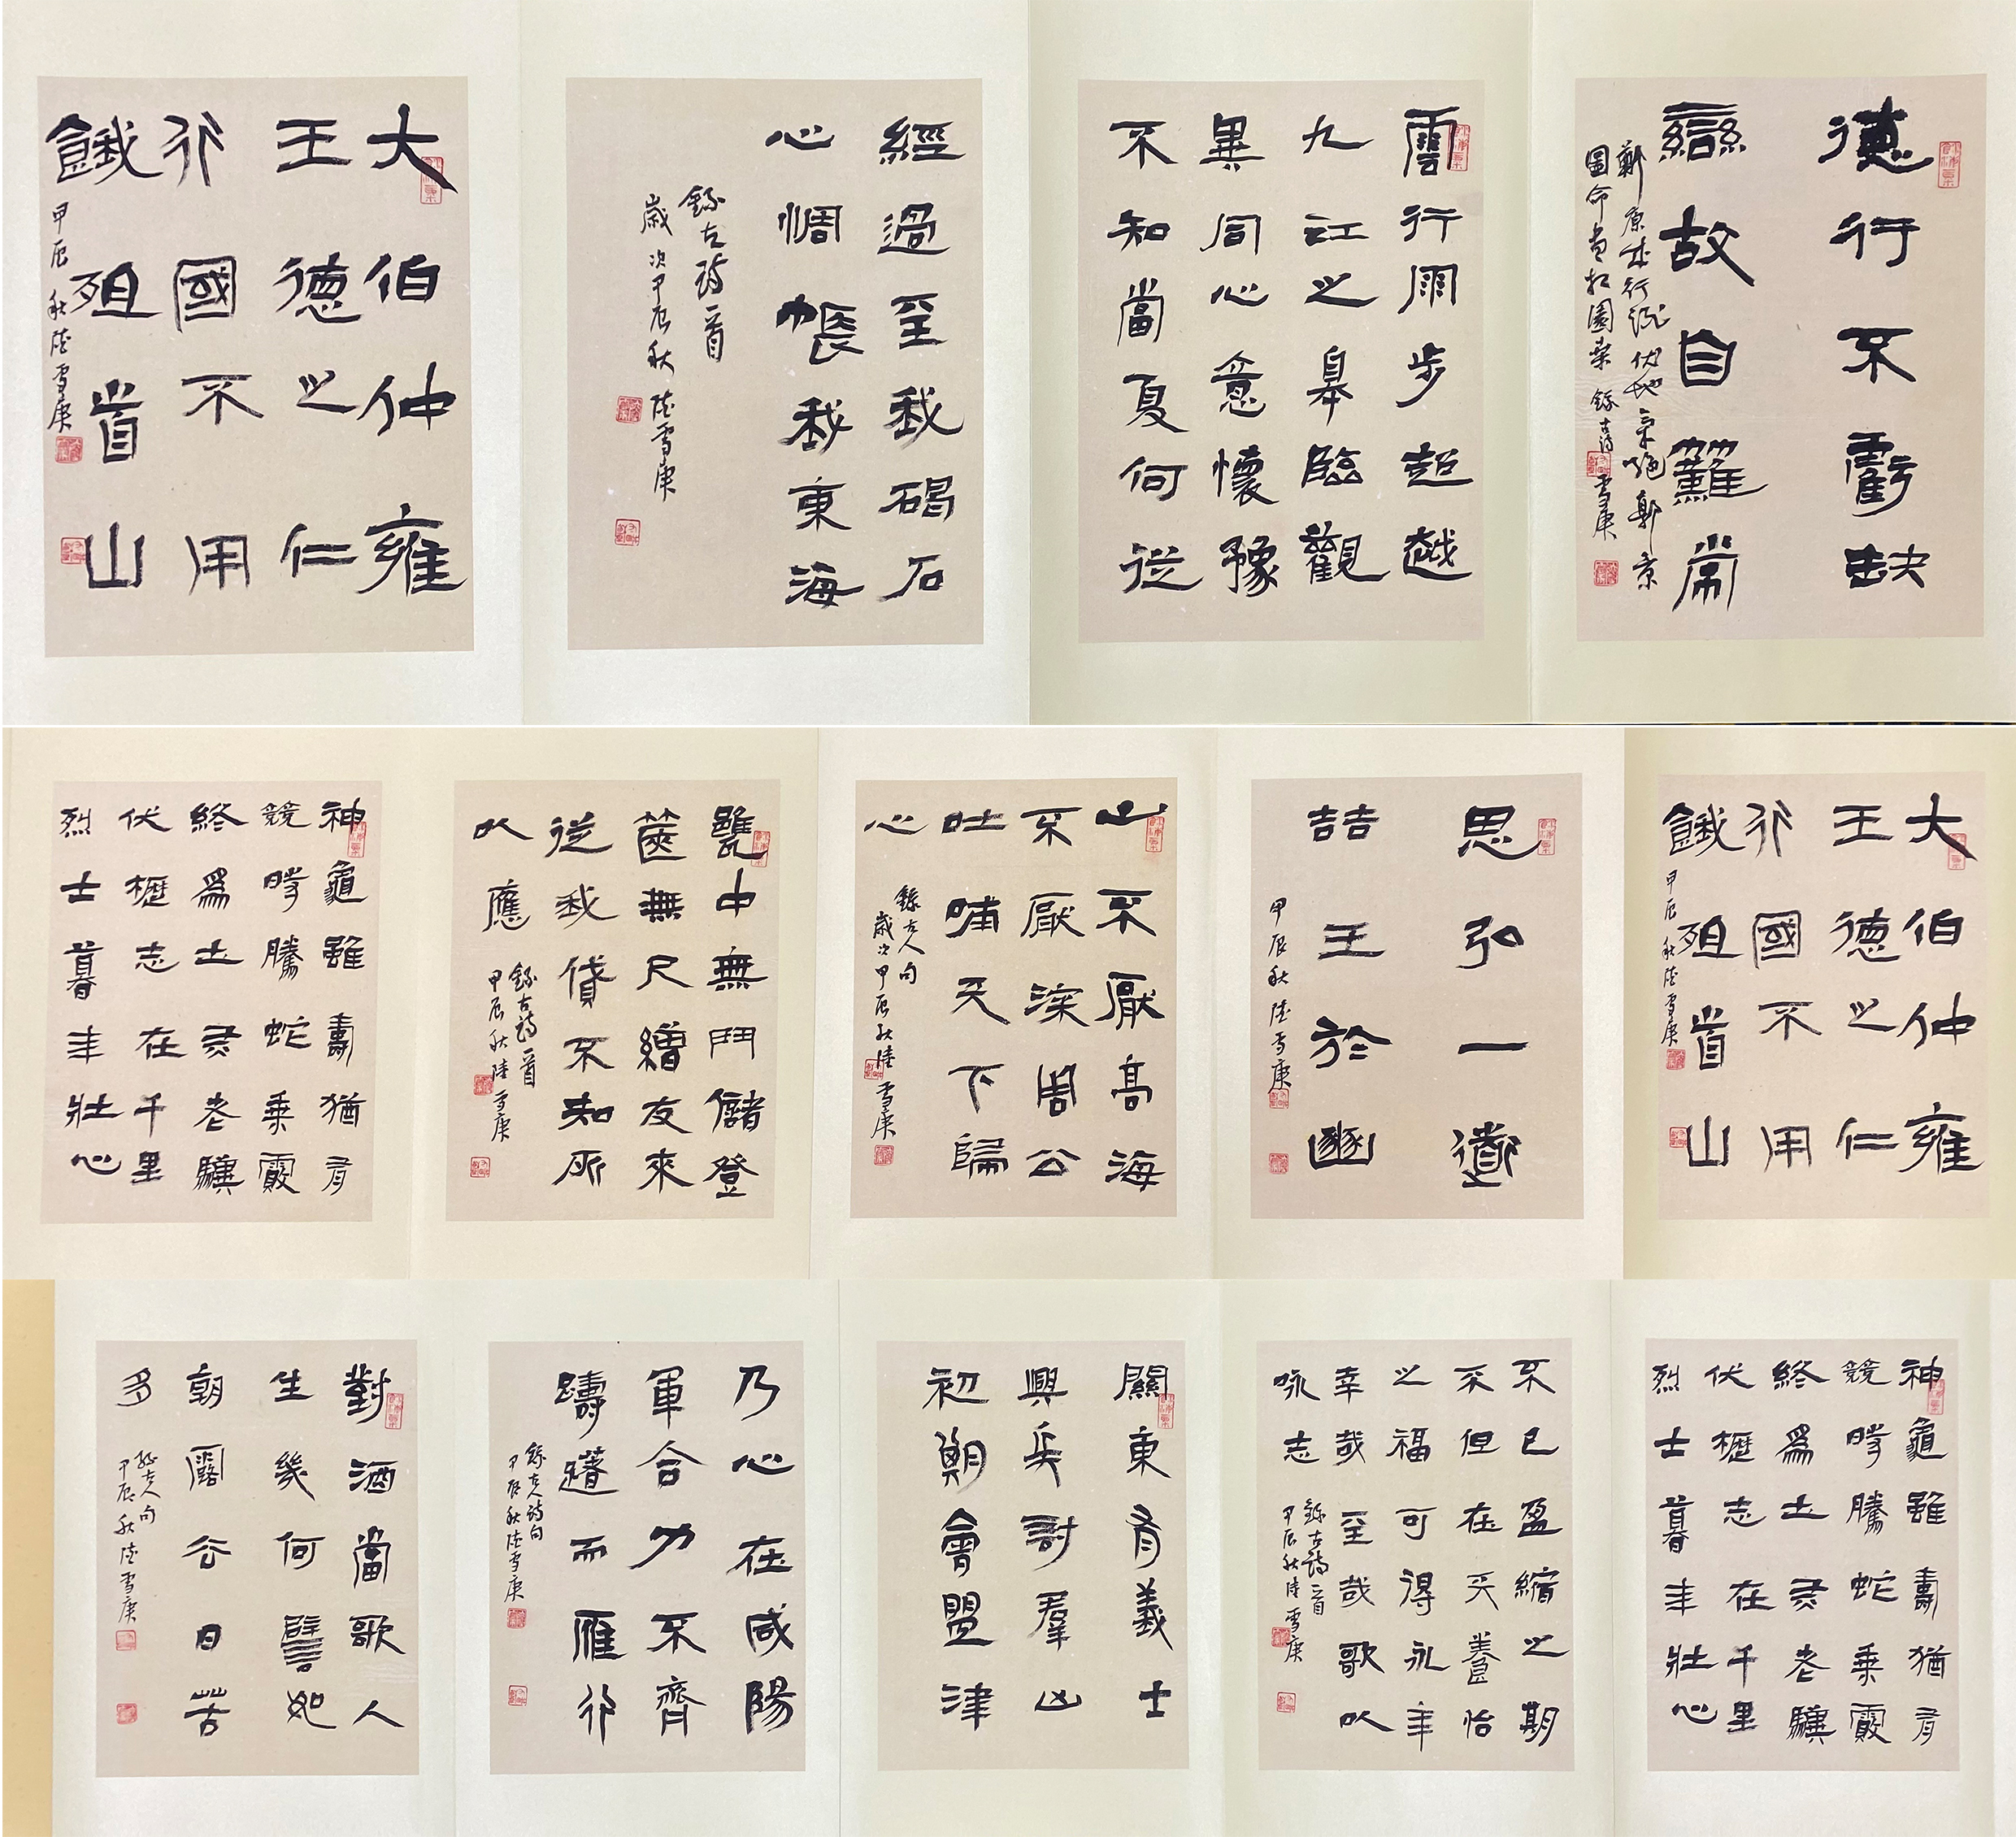 德行不虧缺
變故自難常
鄭康成行酒伏地氣絕郭景
圖命盡於園桑 錄古詩 雪庚
雲行雨步超越
九江之皋臨觀
異同心意懷豫
不知當夏何從
經過至我碣石
心惆悵我東海
錄古詩一首
歲次甲辰秋 陸雪庚
大伯仲雍
王德之仁
行國不用
餓殂首山
甲辰秋陸雪庚
大伯仲雍
王德之仁
行國不用
餓殂首山
甲辰秋陸雪庚
思弘一道
喆王於豳
甲辰秋陸雪庚
山不厭高海
不厭深周公
吐哺天下歸
心
錄古人句
歲次甲辰秋陸雪庚
甕中無鬥儲登
篋無尺繒友來
從我貸不知所
以應
錄古詩一首
甲辰秋陸雪庚
神龜雖壽猶有
競時騰蛇乘霧
終為土灰老驥
伏櫪志在千里
烈士暮年壯心
神龜雖壽猶有
競時騰蛇乘霧
終為土灰老驥
伏櫪志在千里
烈士暮年壯心
不已盈縮之期
不但在天養怡
之福可得永年
幸哉至哉歌以
咏志
錄古詩一首
甲辰秋陸雪庚
關東有義士
興兵討羣凶
初期會盟津
乃心在咸陽
軍合力不齊
躊躇而雁行
錄古人詩句
甲辰秋陸雪庚
對酒當歌人
生幾何譬如
朝露去日苦
多
錄古人句
甲辰秋陸雪庚